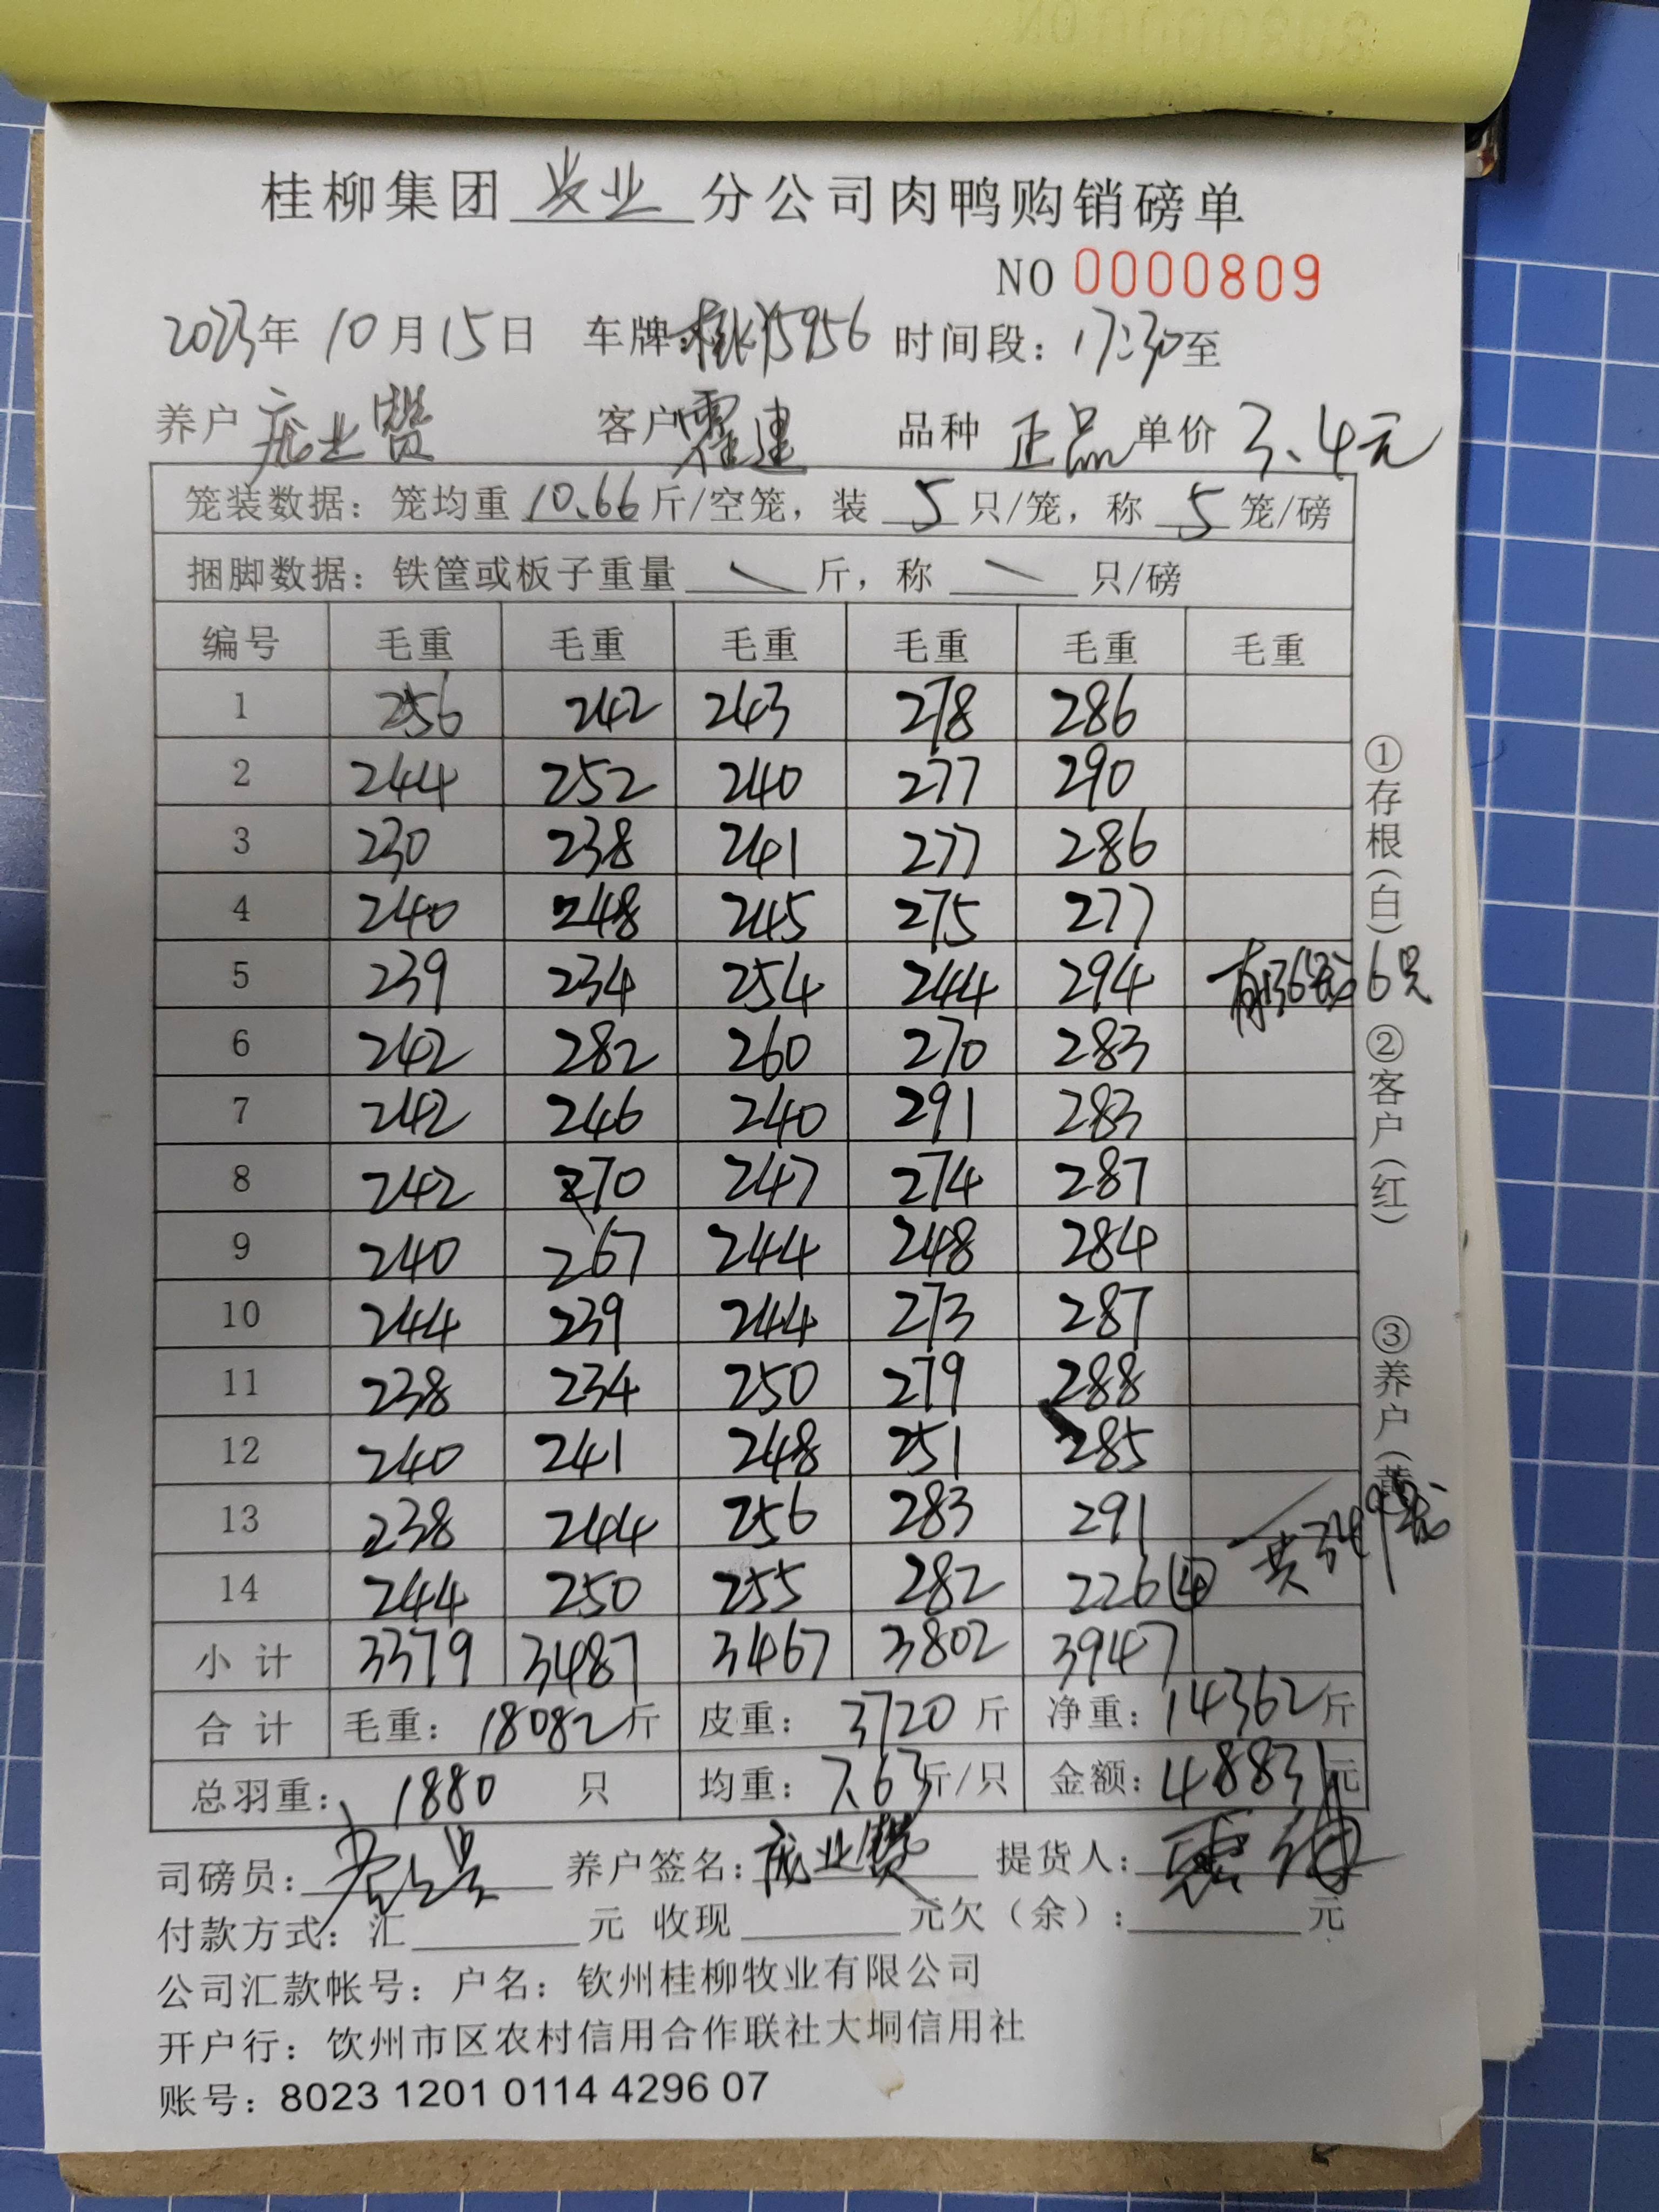 桂柳集团 牧业 分公司肉鸭购销磅单
NO 0000809
2023年 10月15日 车牌:桂 5956 时间段：17:30至
养户 庞业赞 客户 霍建 品种 正品 单价 3.4元
笼装数据：笼均重 10.66 斤/空笼，装 5 只/笼，称 5 笼/磅
捆脚数据：铁筐或板子重量 斤，称 只/磅
编号 毛重 毛重 毛重 毛重 毛重 毛重
1 256 242 243 278 286
2 244 252 240 277 290
3 230 238 241 277 286
4 240 248 245 275 277
5 239 234 254 244 294 有136笼6只
6 242 282 260 270 283
7 242 246 240 291 283
8 242 270 247 274 287
9 240 267 244 248 284
10 244 239 244 273 287
11 238 234 250 279 288
12 240 241 248 251 285
13 238 244 256 283 291
14 244 250 255 282 226④ 共349笼
小计 3379 3487 3467 3802 3947
合计 毛重：18082斤 皮重：3720斤 净重：14362斤
总羽重：1880 只 均重：7.63斤/只 金额：48831元
司磅员： 养户签名：庞业赞 提货人：
付款方式：汇 元 收现 元欠（余）： 元
公司汇款帐号：户名：钦州桂柳牧业有限公司
开户行：饮州市区农村信用合作联社大垌信用社
账号：8023 1201 0114 4296 07
①存根（白）
②客户（红）
③养户（黄